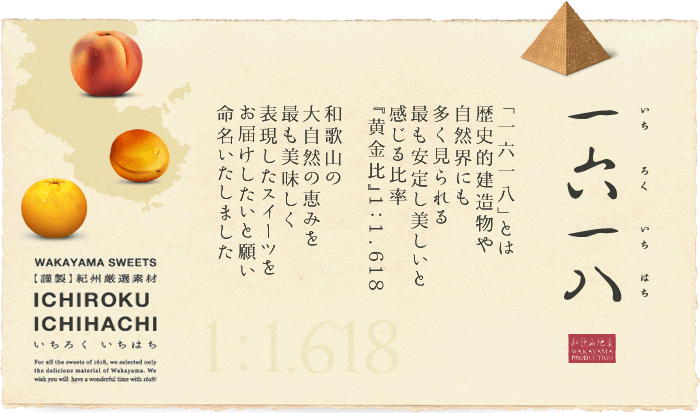 一六一八
いち ろく いち はち
和歌山地産
WAKAYAMA
PRODUCTION
「一六一八」とは
歴史的建造物や
自然界にも
多く見られる
最も安定し美しいと
感じる比率
『黄金比』1:1.618
和歌山の
大自然の恵みを
最も美味しく
表現したスイーツを
お届けしたいと願い
命名いたしました
1:1.618
WAKAYAMA SWEETS
【謹製】紀州厳選素材
ICHIROKU
ICHIHACHI
いちろく いちはち
For all the sweets of 1618, we selected only
the delicious material of Wakayama. We
wish you will have a wonderful time with 1618!